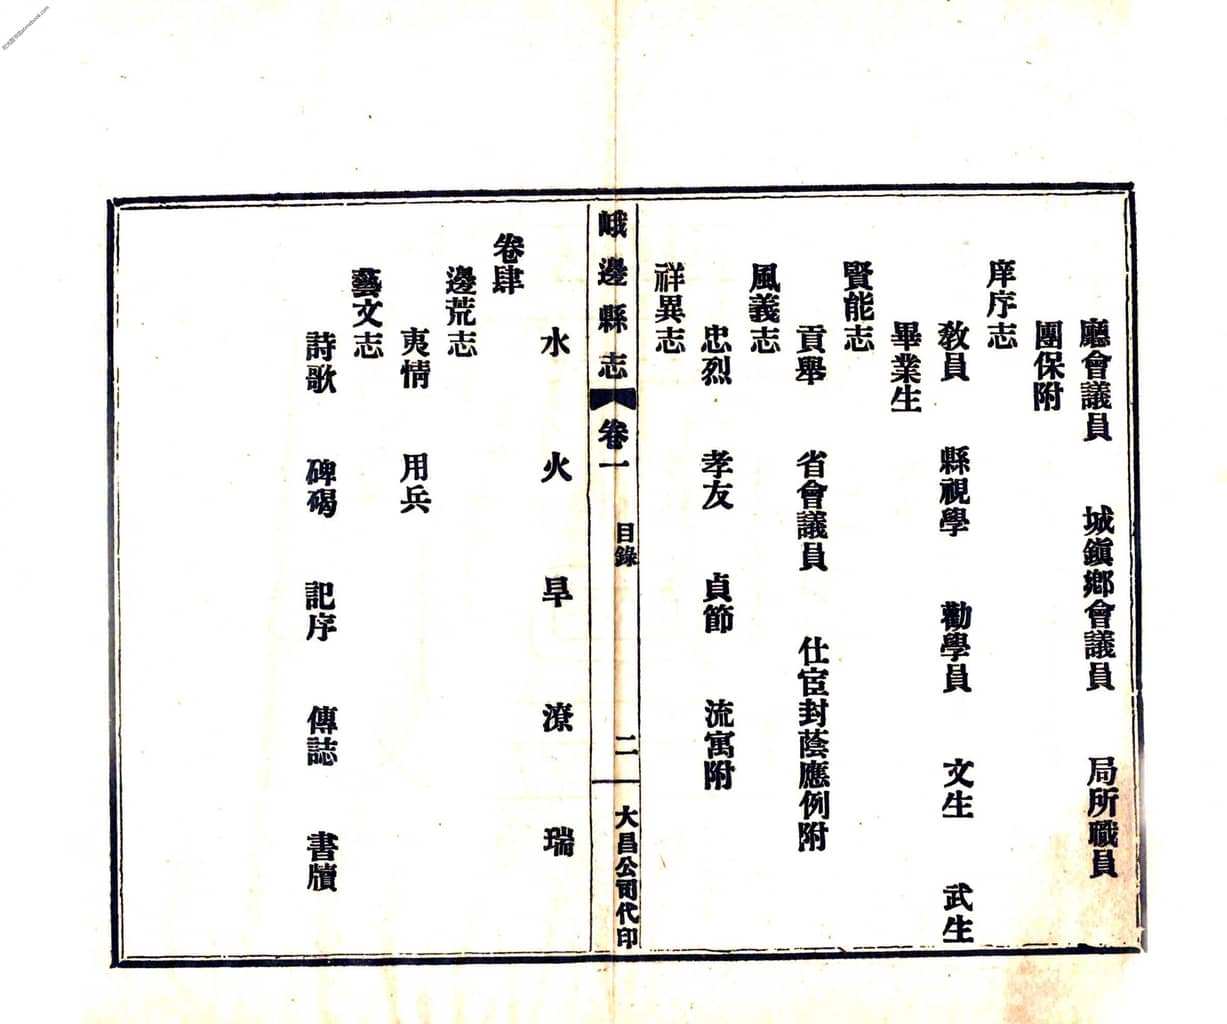 廳會議員　城鎭鄉會議員　局所職員
團保附
庠序志
敎員　縣視學　勸學員　文生　武生
畢業生
賢能志
貢舉　省會議員　仕宦封蔭應例附
風義志
忠烈　孝友　貞節　流寓附
祥異志
峨邊縣志　卷一　目錄　二　大昌公司代印
水　火　旱　潦　瑞
卷肆
邊荒志
夷情　用兵
藝文志
詩歌　碑碣　記序　傳誌　書牘